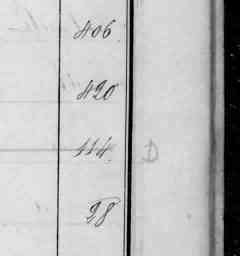 406
420
114
28